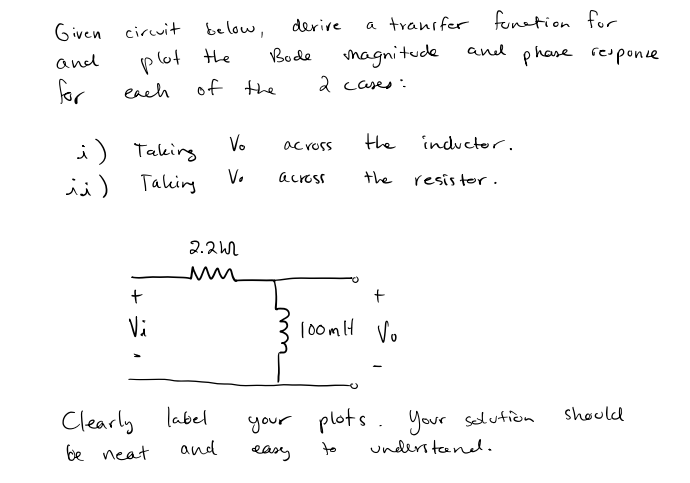 Given circuit below, derive a transfer function for
and plot the Bode magnitude and phase response
for each of the 2 cases:
i) Taking Vo across the inductor.
ii) Taking Vo across the resistor.
2.2kΩ
+ +
Vi 100mH Vo
- -
Clearly label your plots. Your solution should
be neat and easy to understand.